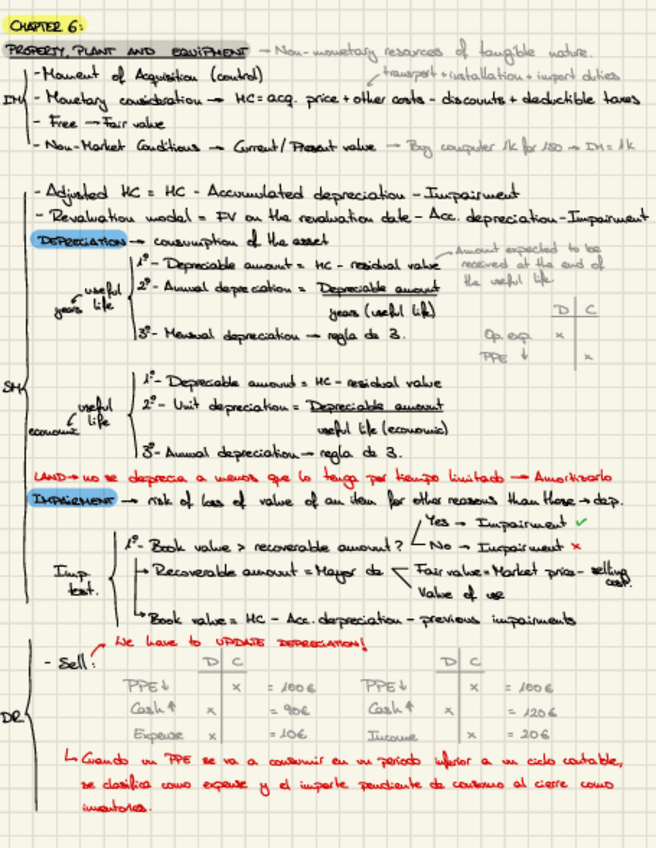 CHAPTER 6:
PROPERTY, PLANT AND EQUIPMENT → Non-monetary resources of tangible nature.
- Moment of Acquisition (control)
transport + installation + import duties
IM
- Monetary consideration → HC = acq. price + other costs - discounts + deductible taxes
- Free → Fair value
- Non-Market Conditions → Current/Present value → Buy computer 1k for 150 → IM = 1k
- Adjusted HC = HC - Accumulated depreciation - Impairment
- Revaluation model = FV on the revaluation date - Acc. depreciation - Impairment
DEPRECIATION → consumption of the asset
Amount expected to be received at the end of the useful life.
1º- Depreciable amount = HC - residual value
years useful life
2º- Annual depreciation = Depreciable amount
years (useful life)
D C
3º- Mensual depreciation → regla de 3.
Op. exp. x
PPE ↓ x
SM
1º- Depreciable amound = HC - residual value
economic useful life
2º- Unit depreciation = Depreciable amount
useful life (economic)
3º- Annual depreciation → regla de 3.
LAND → no se deprecia a menos que lo tenga por tiempo limitado → Amortizarlo
IMPAIRMENT → risk of loss of value of an item for other reasons than those → dep.
Yes → Impairment ✓
1º- Book value > recoverable amount?
No → Impairment x
Imp. test.
Recoverable amount = Mayor de
Fair value = Market price - selling cost.
Value of use
Book value = HC - Acc. depreciation - previous impairments
We have to UPDATE DEPRECIATION!
DR
- Sell:
D C
D C
PPE ↓ x = 100€
PPE ↓ x = 100€
Cash ↑ x = 90€
Cash ↑ x = 120€
Expense x = 10€
Income x = 20€
↳ Cuando un PPE se va a consumir en un periodo inferior a un ciclo contable,
se clasifica como expense y el importe pendiente de consumo al cierre como
inventories.